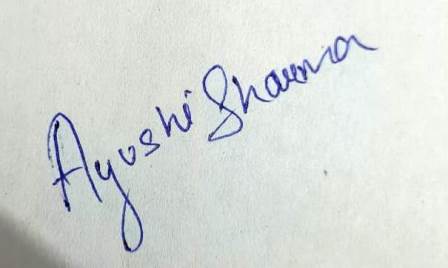 Ayushi Sharma